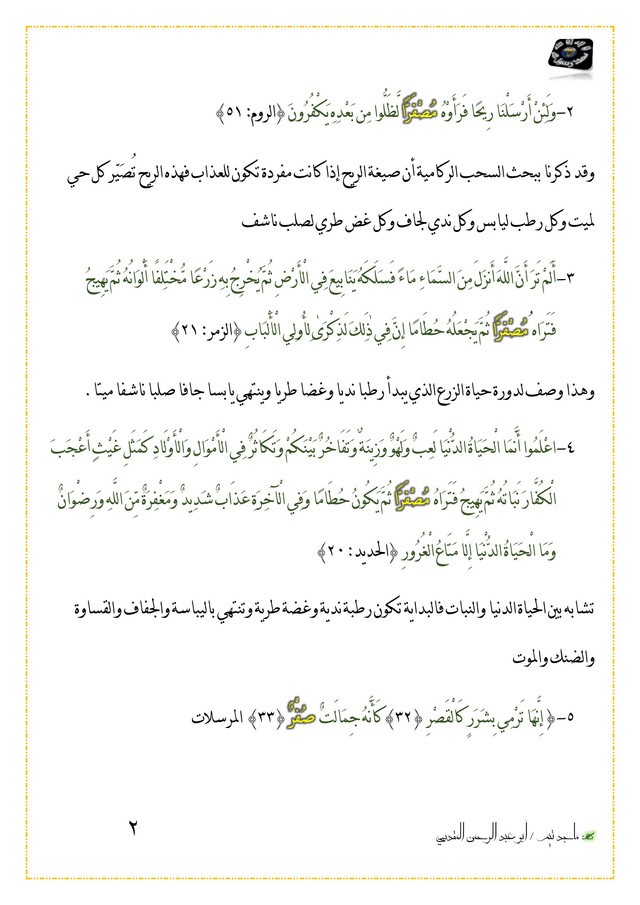 ٢-وَلَئِنْ أَرْسَلْنَا رِيحًا فَرَأَوْهُ مُصْفَرًّا لَّظَلُّوا مِن بَعْدِهِ يَكْفُرُونَ ﴿الروم: ٥١﴾
وقد ذكرنا ببحث السحب الركامية أن صيغة الريح إذا كانت مفردة تكون للعذاب فهذه الريح تُصَيّر كل حي
لميت وكل رطب ليابس وكل ندي لجاف وكل غض طري لصلب ناشف
٣-أَلَمْ تَرَ أَنَّ اللَّهَ أَنزَلَ مِنَ السَّمَاءِ مَاءً فَسَلَكَهُ يَنَابِيعَ فِي الْأَرْضِ ثُمَّ يُخْرِجُ بِهِ زَرْعًا مُّخْتَلِفًا أَلْوَانُهُ ثُمَّ يَهِيجُ
فَتَرَاهُ مُصْفَرًّا ثُمَّ يَجْعَلُهُ حُطَامًا إِنَّ فِي ذَٰلِكَ لَذِكْرَىٰ لِأُولِي الْأَلْبَابِ ﴿الزمر: ٢١﴾
وهذا وصف لدورة حياة الزرع الذي يبدأ رطبا نديا وغضا طريا وينتهي يابسا جافا صلبا ناشفا ميتا .
٤-اعْلَمُوا أَنَّمَا الْحَيَاةُ الدُّنْيَا لَعِبٌ وَلَهْوٌ وَزِينَةٌ وَتَفَاخُرٌ بَيْنَكُمْ وَتَكَاثُرٌ فِي الْأَمْوَالِ وَالْأَوْلَادِ كَمَثَلِ غَيْثٍ أَعْجَبَ
الْكُفَّارَ نَبَاتُهُ ثُمَّ يَهِيجُ فَتَرَاهُ مُصْفَرًّا ثُمَّ يَكُونُ حُطَامًا وَفِي الْآخِرَةِ عَذَابٌ شَدِيدٌ وَمَغْفِرَةٌ مِّنَ اللَّهِ وَرِضْوَانٌ
وَمَا الْحَيَاةُ الدُّنْيَا إِلَّا مَتَاعُ الْغُرُورِ ﴿الحديد: ٢٠﴾
تشابه بين الحياة الدنيا والنبات فالبداية تكون رطبة ندية وغضة طرية وتنتهي باليباسة والجفاف والقساوة
والضنك والموت
٥-﴿إِنَّهَا تَرْمِي بِشَرَرٍ كَالْقَصْرِ ﴿٣٢﴾كَأَنَّهُ جِمَالَتٌ صُفْرٌ ﴿٣٣﴾ المرسلات
/ ابو عبد الرحمن المقدسي
٢